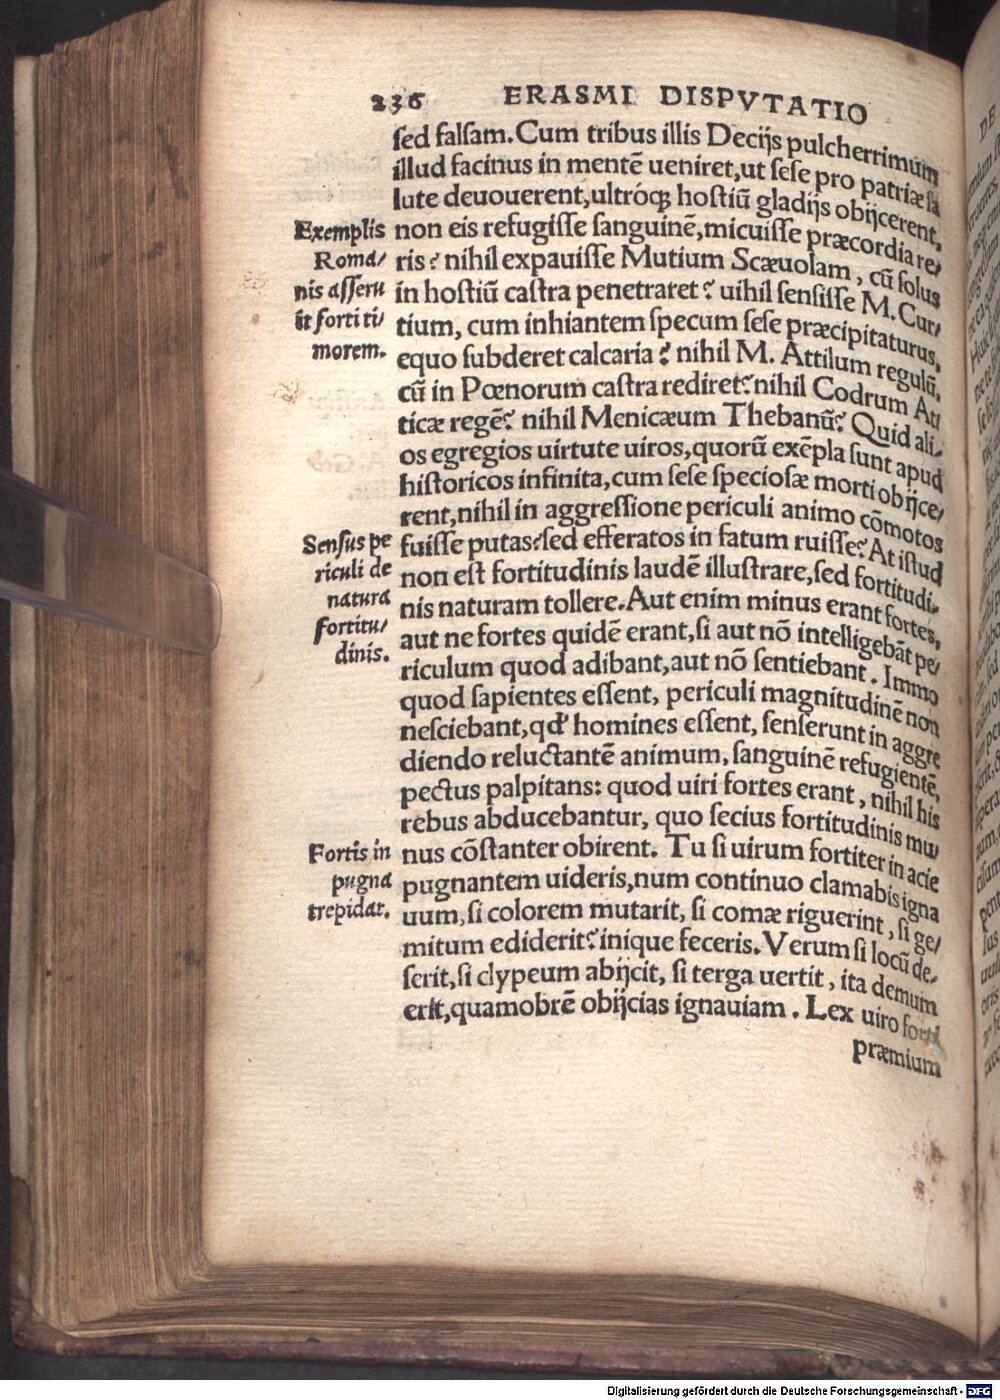 236 ERASMI DISPVTATIO
sed falsam. Cum tribus illis Decijs pulcherrimum
illud facinus in mentē ueniret, ut sese pro patriæ sa
lute deuouerent, ultróq; hostiū gladijs obijcerent,
non eis refugisse sanguinē, micuisse præcordia re/
ris? nihil expauisse Mutium Scæuolam, cū solus
in hostiū castra penetraret? uihil sensisse M. Cur/
tium, cum inhiantem specum sese præcipitaturus,
equo subderet calcaria? nihil M. Attilum regulū,
cū in Pœnorum castra rediret? nihil Codrum At/
ticæ regē? nihil Menicæum Thebanū? Quid ali/
os egregios uirtute uiros, quorū exēpla sunt apud
historicos infinita, cum sese speciosæ morti obijce/
rent, nihil in aggressione periculi animo cōmotos
fuisse putas? sed efferatos in fatum ruisse? At istud
non est fortitudinis laudē illustrare, sed fortitudi/
nis naturam tollere. Aut enim minus erant fortes,
aut ne fortes quidē erant, si aut nō intelligebāt pe/
riculum quod adibant, aut nō sentiebant. Immo
quod sapientes essent, periculi magnitudinē non
nesciebant, qd' homines essent, senserunt in aggre
diendo reluctantē animum, sanguinē refugientē,
pectus palpitans: quod uiri fortes erant, nihil his
rebus abducebantur, quo secius fortitudinis mu/
nus cōstanter obirent. Tu si uirum fortiter in acie
pugnantem uideris, num continuo clamabis igna
uum, si colorem mutarit, si comæ riguerint, si ge/
mitum ediderit? inique feceris. Verum si locū de/
serit, si clypeum abijcit, si terga uertit, ita demum
erit, quamobrē obijcias ignauiam. Lex uiro forti
præmium
Exemplis
Roma/
nis asseru
it forti ti/
morem.
Sensus pe
riculi de
natura
fortitu/
dinis.
Fortis in
pugna
trepidat.
Digitalisierung gefördert durch die Deutsche Forschungsgemeinschaft - DFG